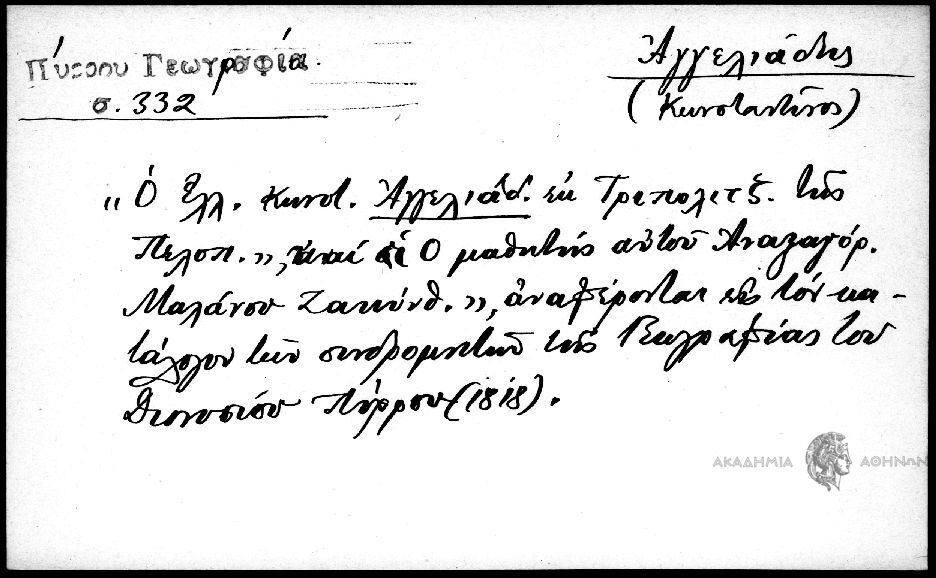 Πύρρου Γεωγραφία.
σ. 332
Ἀγγελιάδης
(Κωνσταντῖνος)
„Ὁ Ἑλλ. Κωνστ. Ἀγγελιάδ. ἐκ Τριπολιτζ. τῆς
Πελοπ.", καὶ Ὁ μαθητὴς αὐτοῦ Ἀναξαγόρ.
Μαλάνου Ζακύνθ.", ἀναφέρονται εἰς τὸν κα-
τάλογον τῶν συνδρομητῶν τῆς Γεωγραφίας τοῦ
Διονυσίου Πύρρου (1818).
ΑΚΑΔΗΜΙΑ ΑΘΗΝΩΝ